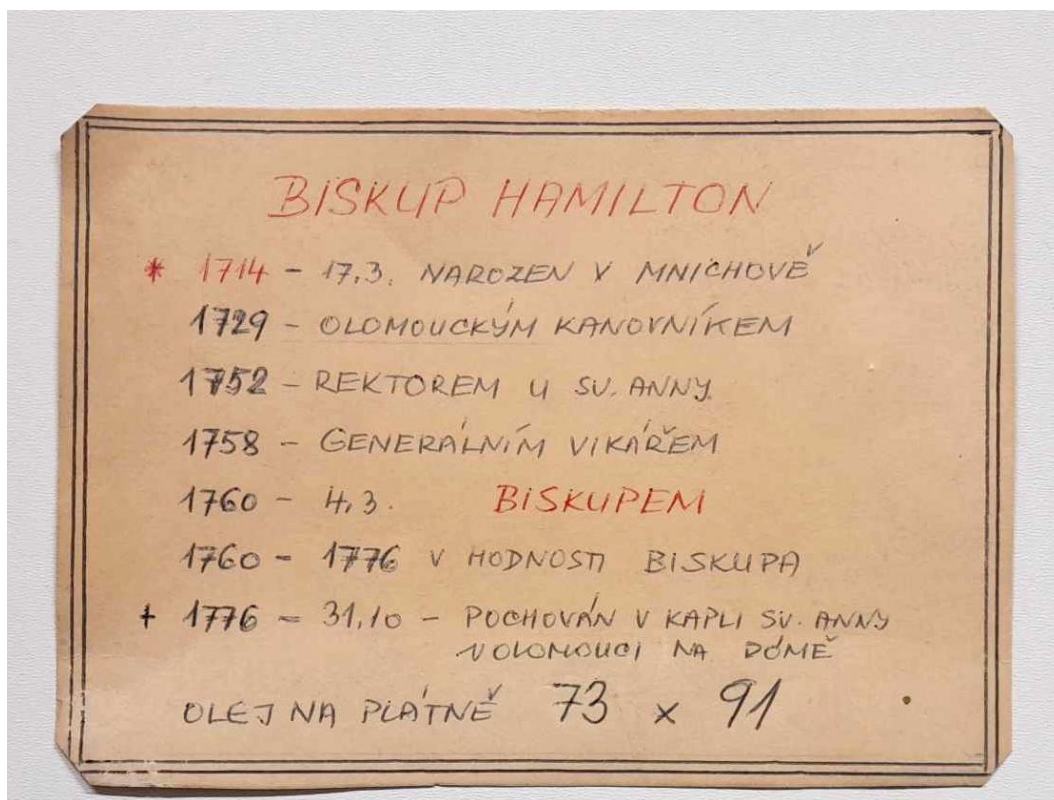 BISKUP HAMILTON
* 1714 - 17.3. NAROZEN V MNICHOVĚ
1729 - OLOMOUCKÝM KANOVNÍKEM
1752 - REKTOREM U SV. ANNY
1758 - GENERÁLNÍM VIKÁŘEM
1760 - 4.3. BISKUPEM
1760 - 1776 V HODNOSTI BISKUPA
+ 1776 - 31.10 - POCHOVÁN V KAPLI SV. ANNY
V OLOMOUCI NA DÓMĚ
OLEJ NA PLÁTNĚ 73 x 91